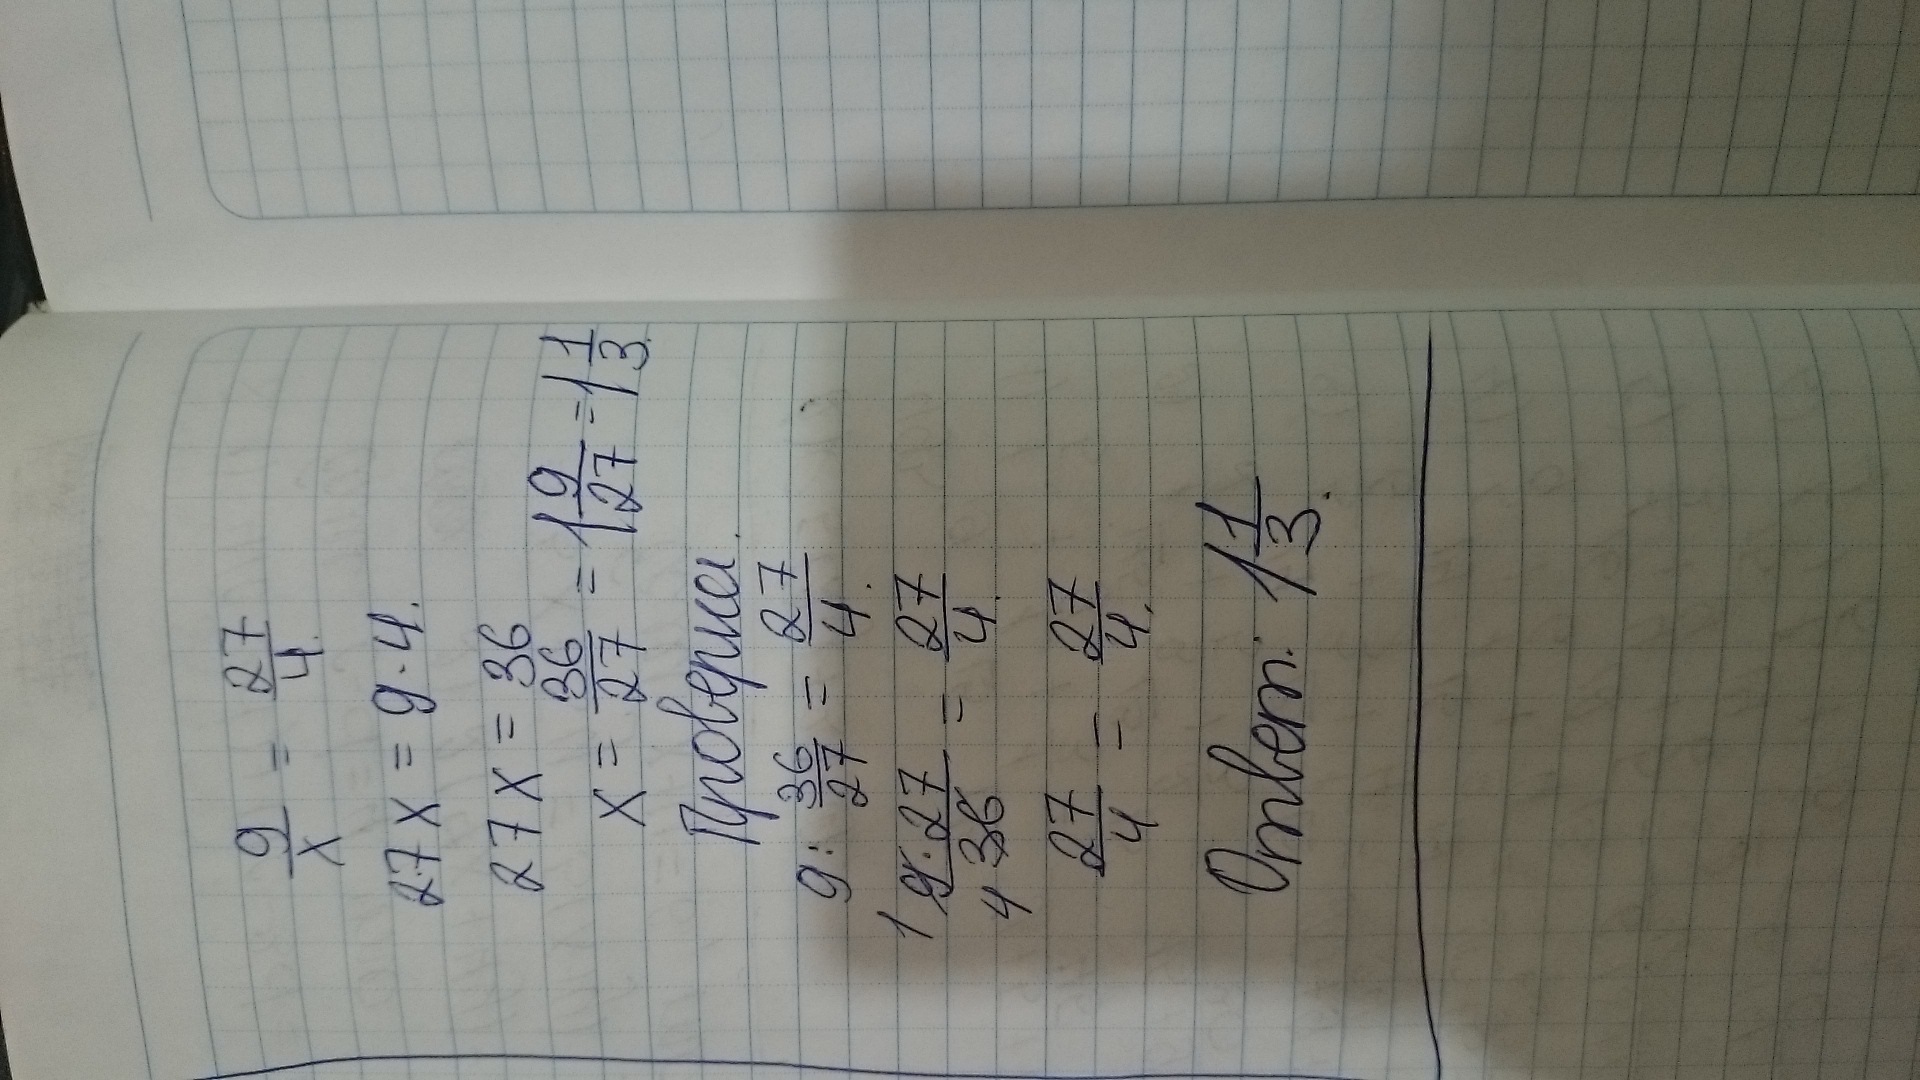 9/x = 27/4.
27x = 9·4.
27x = 36
x = 36/27 = 1 9/27 = 1 1/3.
Проверка.
9 : 36/27 = 27/4.
1 9·27 / 4 36 = 27/4.
27/4 = 27/4.
Ответ: 1 1/3.